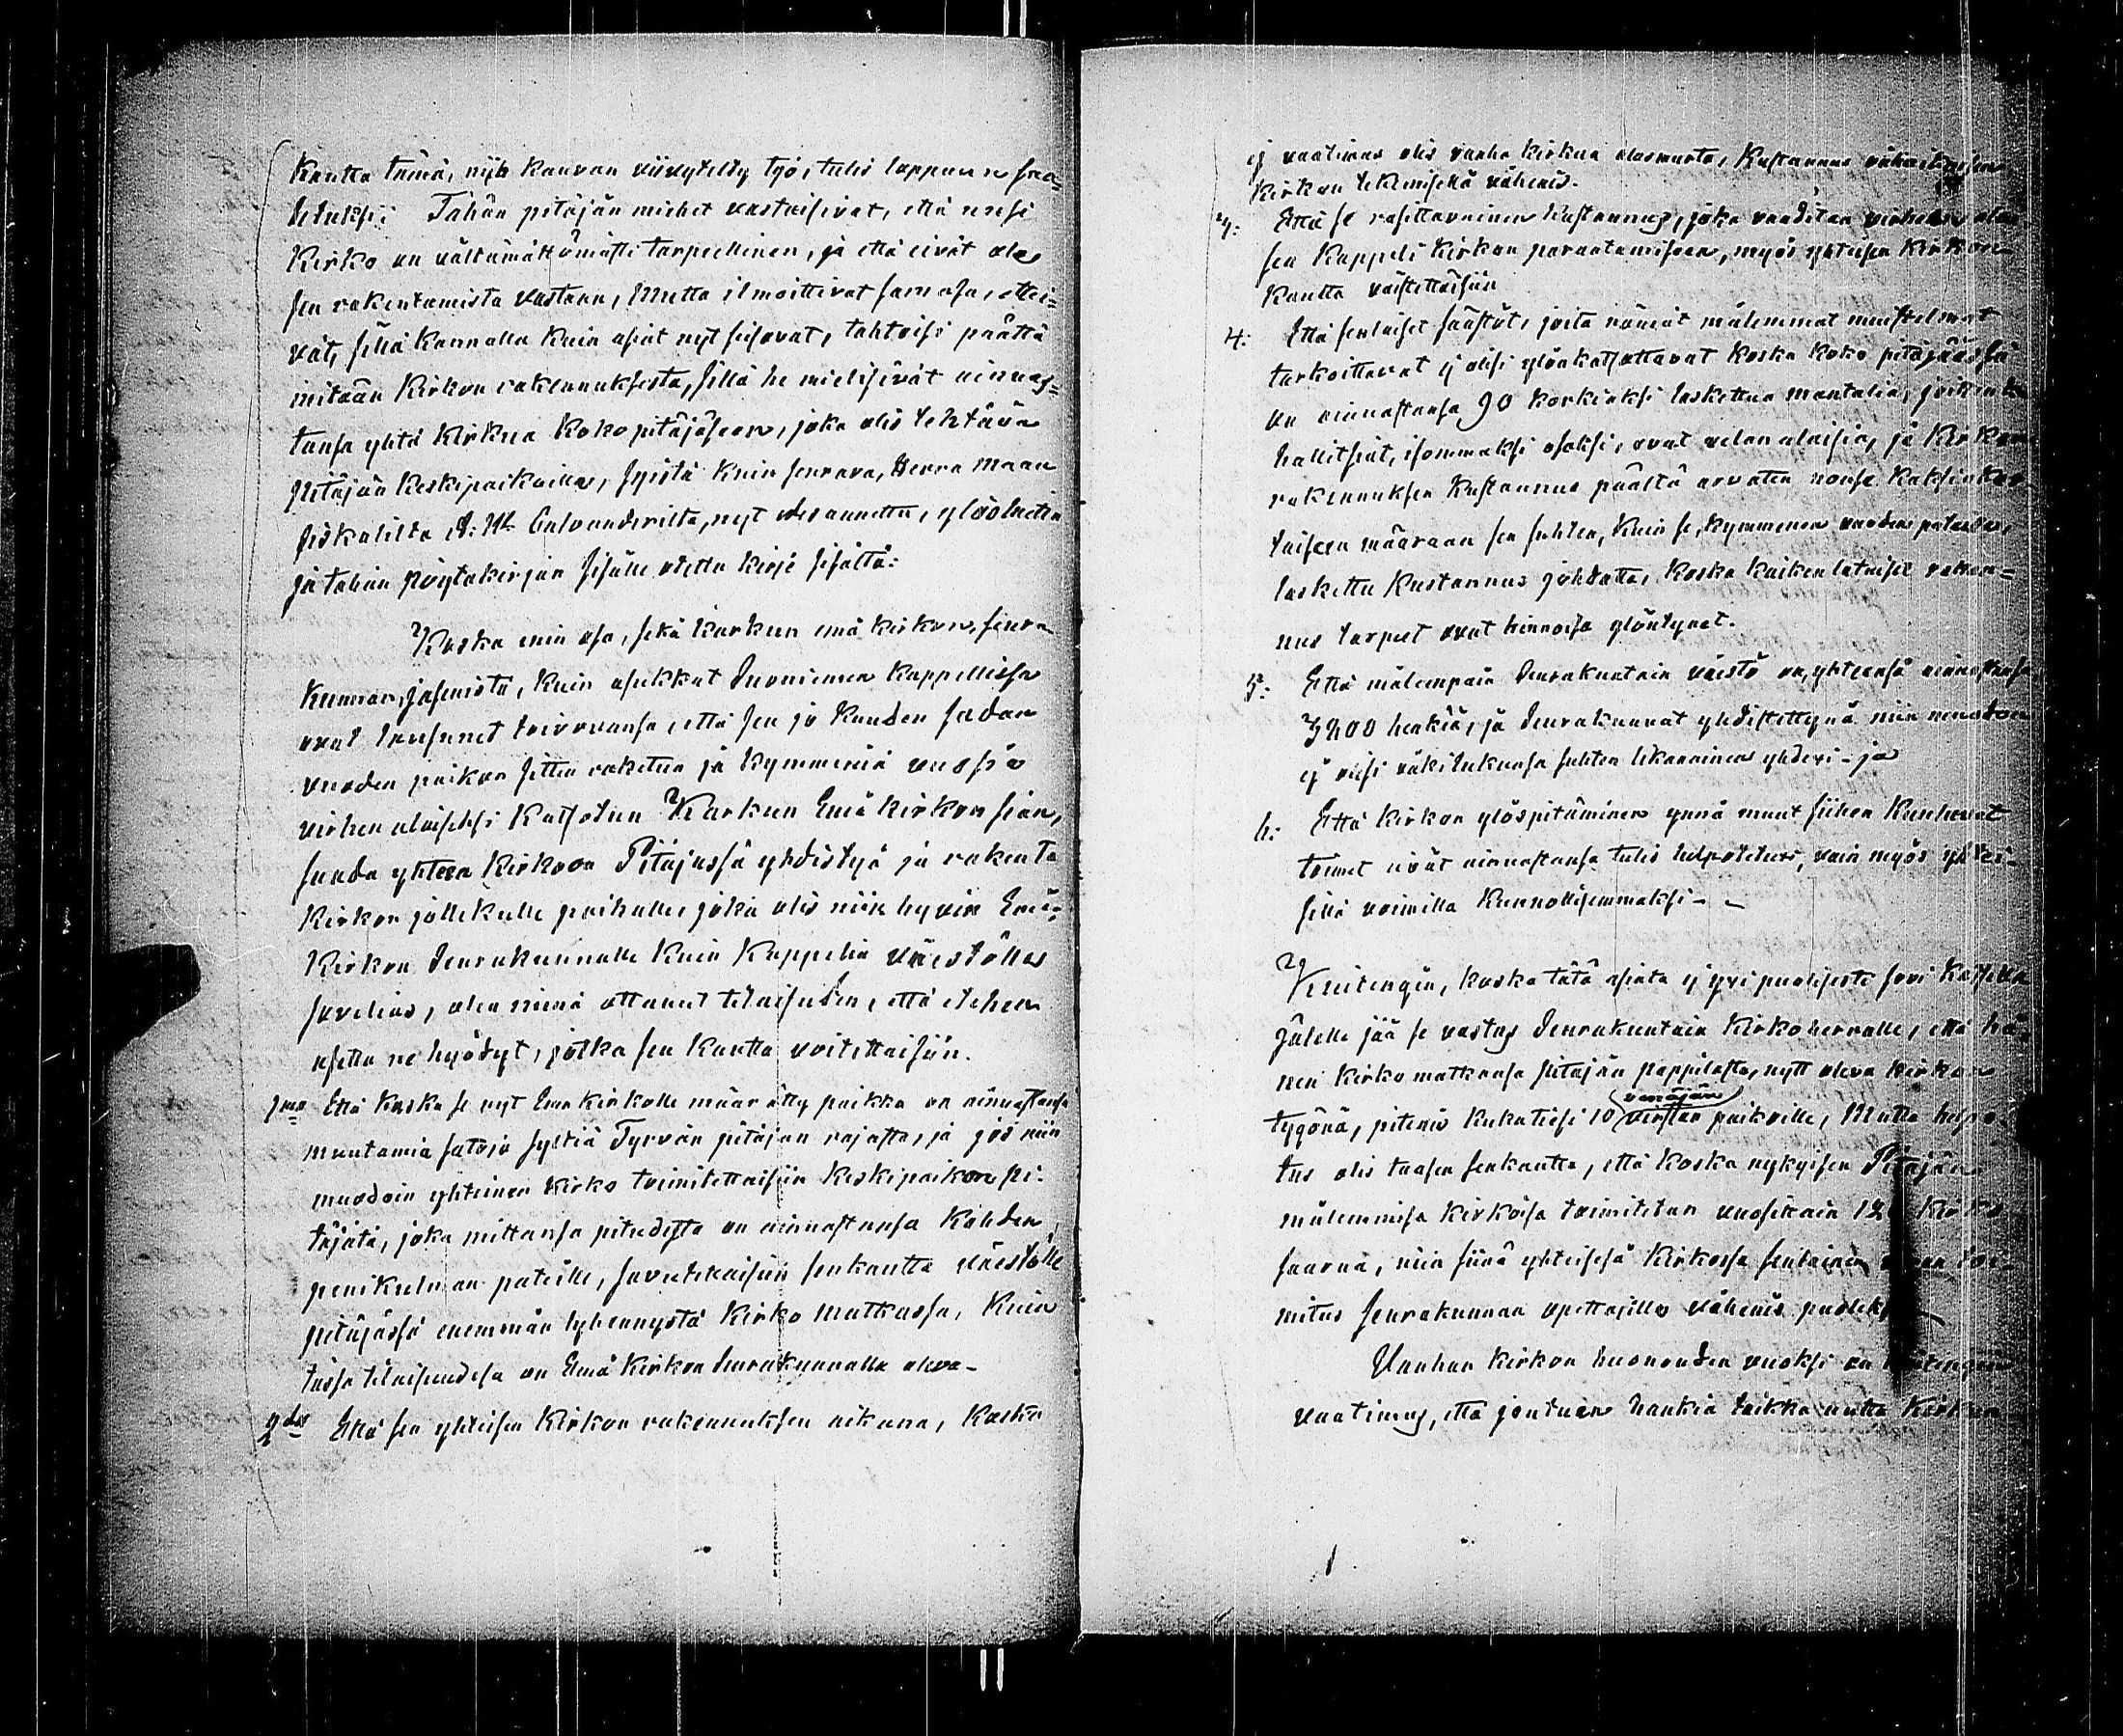 Kautta tämä, nijn kauvan viivytelty työ, tulis loppuun saa=
tetuksi: Tähän pitäjän miehet vastaisivat, että uusi
Kirko on välttämättömästi tarpeellinen, ja että eivät ole
sen rakentamista vastaan, Mutta ilmoittivat samasa, ettei=
vät, sillä kannalla kuin asiat nyt seisovat, tahtoisi päättä
mitään Kirkon rakennuksesta, sillä he mielisivät ainuas=
tansa yhtä Kirkua Koko pitäjäseen, joka olis tehtävä
Pitäjän Keskipaikoilla, syistä kuin seurava, Herra Maan
Fiskalilta Calvanderilta, nyt edesannettu, ylösluettu
ja tähän pöytäkirjan sisälle otettu kirje sisältä:
Koska min osa, sekä Karkun emä kirkon, seura
kunnan, jäsenistä, kuin asukkat Suoniemen Kappelissa
ovat lausunet toivovansa, että sen jo kuuden sadan
vuoden paikon sitten raketun ja kymmeniä vuosia
virhen alaiseksi katsotun Karkun Emä kirkon sian,
saada yhteen Kirkoon Pitäjässä yhdistyä ja rakenta
Kirkon jollekulle paikalle, joka olis niin hyvin Emä=
Kirkon Seurakunnalle kuin Kappelin väestölle
sovelias, olen minä ottanut tilaisuden, että etehen
asetta ne hyödyt, jotka sen kautta voitettaisiin.
1mo Että koska se nyt Emä kirkolle määrätty paikka on ainuastansa
muutamia satoja syltiä Tyrvän pitäjän rajasta, ja jos niin
muodoin yhteinen Kirko toimitettaisiin Keskipaikon pi=
täjätä, joka mittansa pitudesta on ainuastansa kahden
penikulman pateille, saavutettaisiin senkautta väestölle
pitäjässä enemmän lyhennystä Kirko matkassa, kuin
tässä tilaisuudesa on Emä Kirkon Seurakunnalla oleva-
2do Että sen yhteisen Kirkon rakennuksen aikana, koska
ej vaatimus olis vanha kirkua alasmurta, Kustannus
Kirkon tekemisestä vähenis.
3: Että se rasittavainen kustannus, joka vaaditan virhen alai
sen Kappeli Kirkon parantamiseen, myös yhteisen Kirkon
kautta väistettäisiin
4: Että senlaiset säästöt, joita nämät mälemmat muistelmat
tarkoittavat ej olisi ylönkatsottavat koska koko pitäjäässä
on ainuastansa 90 korkiaksi laskettua mantalia, joitenka
hallitsiat, isommaksi osaksi, ovat velan alaisia, ja Kirkon
rakennuksen Kustannus päältä arvaten nouse kaksinker
taiseen määraan sen suhten, kuin se, kymmenen vuoden
laskettu Kustannus johdatta, koska kaikenlataiset raken=
nus tarpeet ovat hinnoisa ylöntynet.
5: Että mälempain Seurakuntain väestö on, yhteensä ainuastansa
3200 henkiä, ja Seurakunnat yhdistettynä niin muodon
ej olisi väkilukunsa suhten liikanainen yhdexi - ja
6: Että Kirkon ylöspitäminen ynnä muut siihen kuuluvat
toimet eivät ainuastansa tulis helpotetuxi, vain myös yhtei-
sillä voimilla kunnollisemmaksi - -
Kuitenqin, koska tätä asiata ej yxi puolisesti sovi katsella
jälelle jää se vastus Seurakuntain Kirkoherralle, että hä
nen Kirko matkansa Pitäjän pappilasta, nytt oleva Kirkon
tygönä, pitenis kukatiesi 10 venäjän virstan paikoille, Mutta helpo
tus olis taasen senkautta, että koska nykyisen Pitäjän
mälemmisa kirkoisa toimitetan vuosittain Kirko
saarna, niin siinä yhteisesä Kirkossa senlainen toi
mitus seurakunnan opettajilla vähenis puoleksi -
Vanhan Kirkon huonouden vuoksi on kuitenqin
vaatimus, että joutuin hankia taikka uutta Kirkua